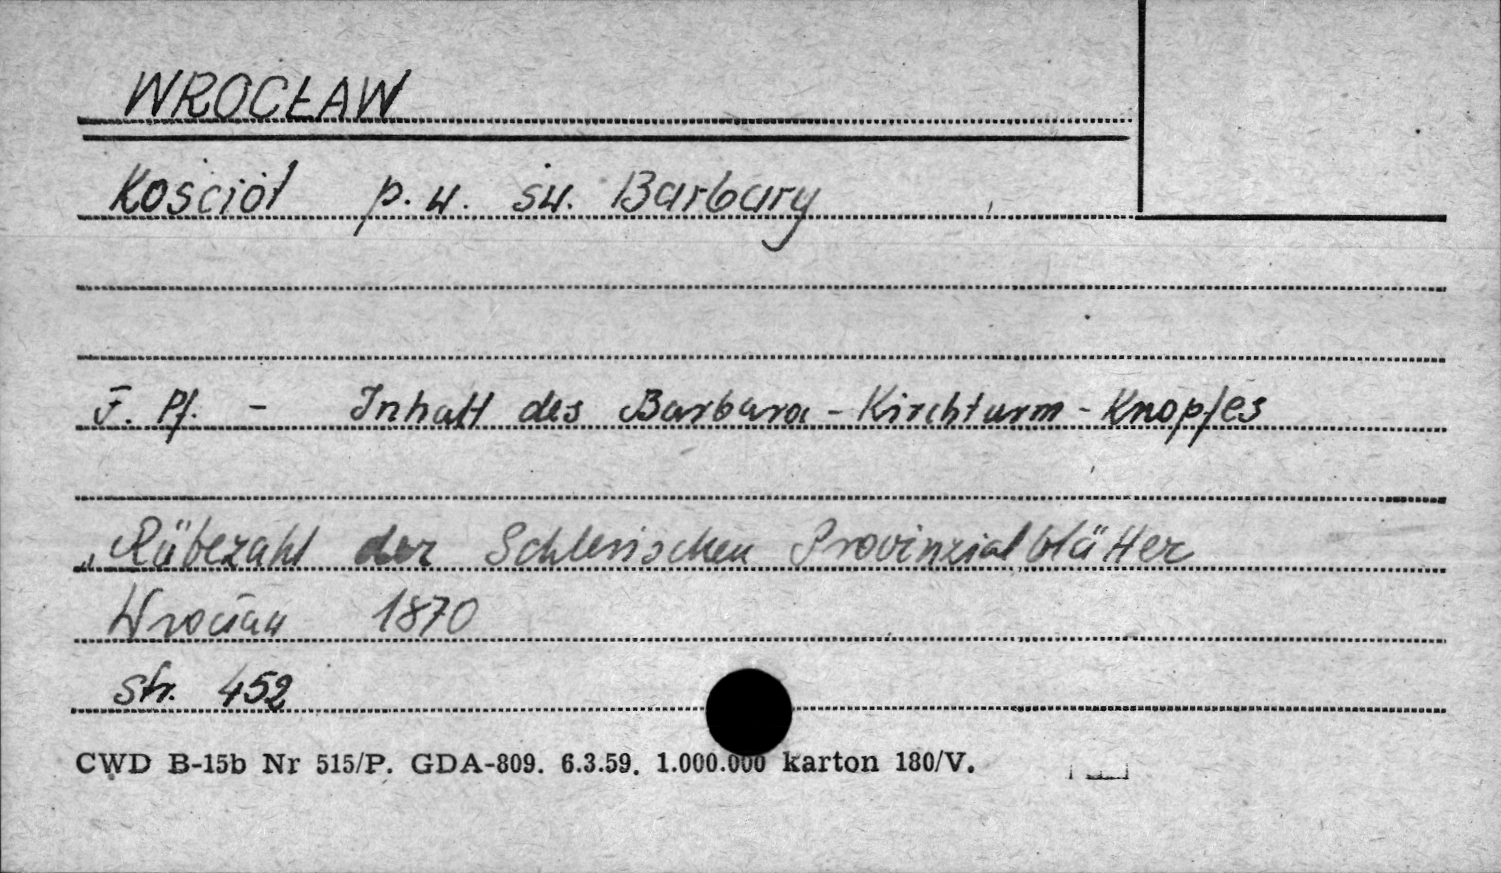 WROCŁAW
Kościół p.w. św. Barbary
F. Pf. - Inhalt des Barbara-Kirchturm-Knopfes
„Rübezahl der Schlesischen Provinzialblätter
Wrocław 1870
str. 452
CWD B-15b Nr 515/P. GDA-809. 6.3.59. 1.000.000 karton 180/V.